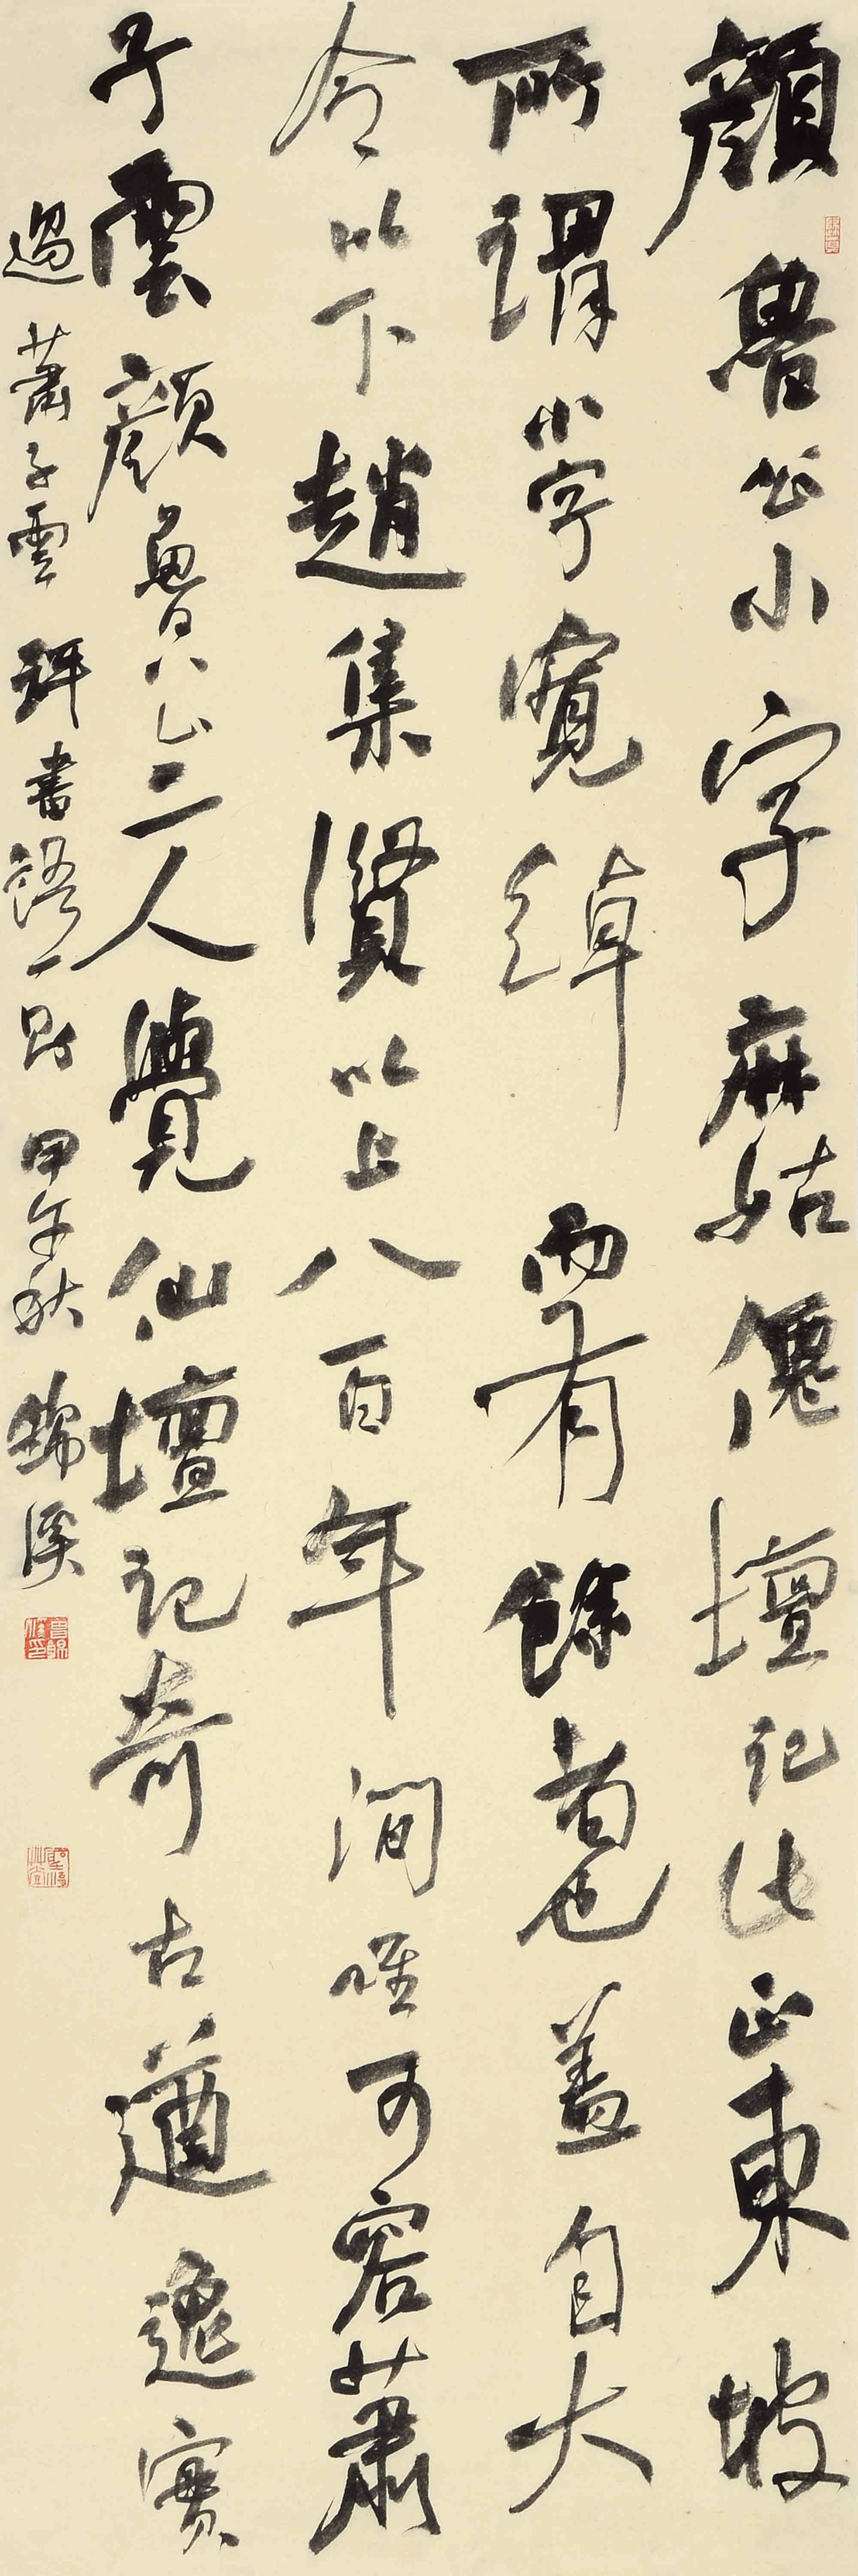 顏魯公小字麻姑僊壇記此正東坡
所謂小字寬綽而有餘者也蓋自大
令以下趙集賢以上八百年間唯可容蕭
子雲顏魯公二人覺仙壇記奇古遒逸實
過蕭子雲 評書語一則 甲午秋 錦溪